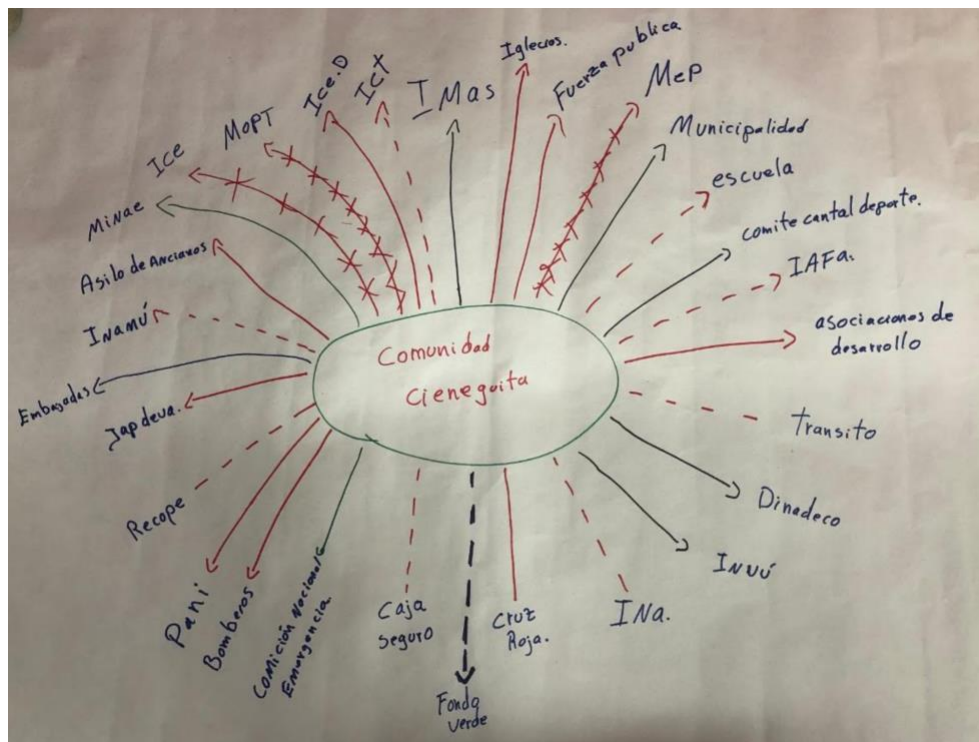 Comunidad
Cieneguita
Iglecias.
Fuerza publica
MeP
Municipalidad
escuela
comite cantal deporte.
IAFa.
asociaciones de
desarrollo
Transito
Dinadeco
INVÚ
INa.
Cruz
Roja.
Fondo
verde
Caja
Seguro
Comición Nacional
Emergencia.
Bomberos
Pani
Recope
Japdeva.
Embagadas
INamú
Asilo de Ancianos
Minae
Ice
MOPT
Ice.D
Ict
IMas